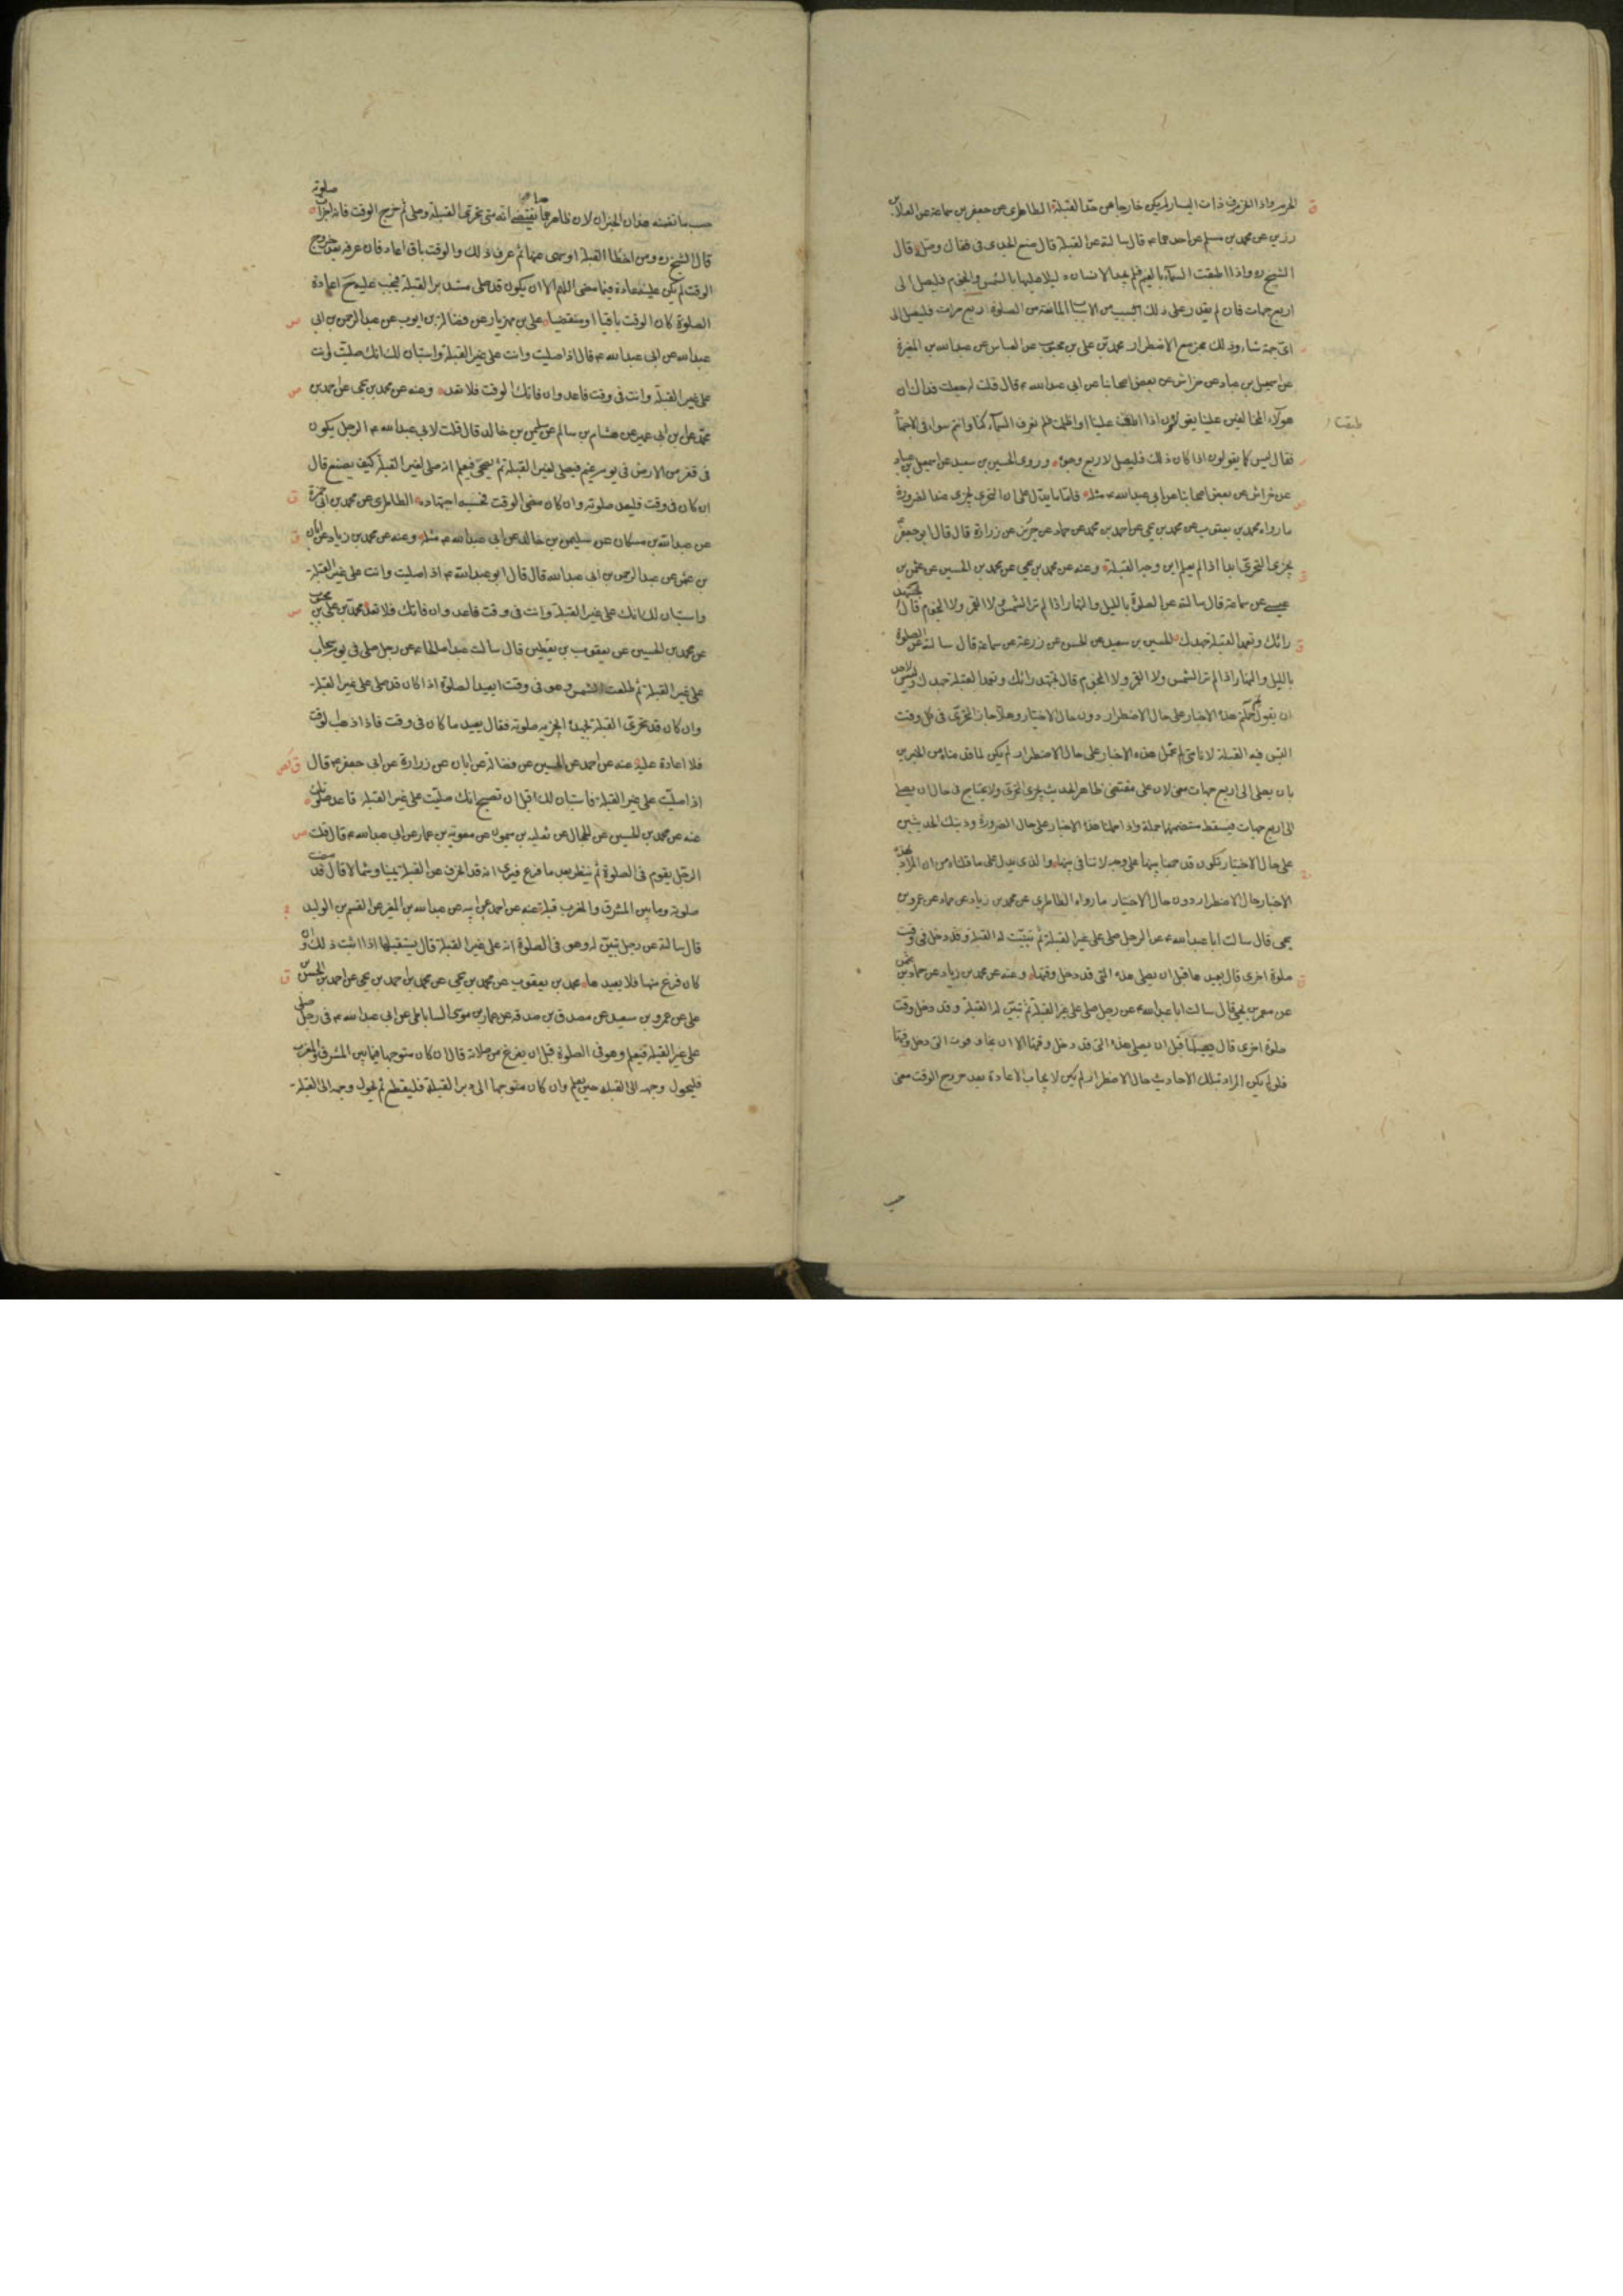 الحرم واذا انحرف ذات اليسار لم يكن خارجا من حد القبلة الطاطرى عن جعفر بن سماعة عن العلاء بن
رزين عن محمد بن مسلم عن احدهما ع قال سالته عن القبلة قال ضع الجدى فى قفاك وصل قال
الشيخ ره واذا اطبقت السمآء بالغيم فلم يجد الانسان دليلا عليها بالشمس والنجوم فليصل الى
اربع جهات فان لم يقدر على ذلك بسبب من الاسباب المانعة من الصلوة اربع مرات فليصل الى
اى جهة شاء وذلك مجز مع الاضطرار محمد بن على بن محبوب عن العباس عن عبد الله بن المغيرة
عن اسمعيل بن عباد عن خراش عن بعض اصحابنا عن ابى عبد الله ع قال قلت له جعلت فداك ان
هولآء المخالفين علينا يقولون اذا اطبقت علينا او اظلمت فلم نعرف السمآء كنا وانتم سواء فى الاجتهاد
طبقت
فقال ليس كما يقولون اذا كان ذلك فليصل لاربع وجوه وروى الحسين بن سعيد عن اسمعيل بن عباد
عن خراش عن بعض اصحابنا عن ابى عبد الله ع مثله فاما ما يدل على ان التحرى يجزى عند الضرورة
ما رواه محمد بن يعقوب عن محمد بن يحيى عن احمد بن محمد عن حماد عن حريز عن زرارة قال قال ابو جعفر ع
يجزى التحرى ابدا اذا لم يعلم اين وجه القبلة وعنه عن محمد بن يحيى عن محمد بن الحسين عن عثمن بن
عيسى عن سماعة قال سالته عن الصلوة بالليل والنهار اذا لم تر الشمس ولا القمر ولا النجوم قال تجتهد
رائك وتعمد القبلة جهدك الحسين بن سعيد عن الحسن عن زرعة عن سماعة قال سالته عن الصلوة
بالليل والنهار اذا لم تر الشمس ولا القمر ولا النجوم قال تجتهد رائك وتعمد القبلة جهدك وليس لاحد
ان يقول حملتم هذه الاخبار على حال الاضطرار دون حال الاختيار وهلا جاز التحرى فى كل وقت
التبس فيه القبلة لانا متى لم نحمل هذه الاخبار على حال الاضطرار لم يكن لما قدمناه من الخبرين
بان يصلى الى اربع جهات معنى لان على مقتضى ظاهر الحديث يجزى التحرى ولا يحتاج فى حال ان يصلى
الى اربع جهات فيسقط متضمنهما جملة واذا حملنا هذه الاخبار على حال الضرورة وذينك الحديثين
على حال الاختيار نكون قد جمعنا بينها على وجه لا تنافى بينها والذى يدل على ما قلناه من ان المراد بهذه
الاخبار حال الاضطرار دون حال الاختيار ما رواه الطاطرى عن محمد بن زياد عن حماد عن عمرو بن
يحيى قال سالت ابا عبد الله ع عن الرجل صلى على غير القبلة ثم تبينت له القبلة وقد دخل فى وقت
صلوة اخرى قال يعيدها قبل ان يصلى هذه التى قد دخل وقتها وعنه عن محمد بن زياد عن حماد بن عثمن
عن معمر بن يحيى قال سالت ابا عبد الله ع عن رجل صلى على غير القبلة ثم تبين له القبلة وقد دخل وقت
صلوة اخرى قال يصليها قبل ان يصلى هذه التى قد دخل وقتها الا ان يخاف فوت التى دخل وقتها
فلو لم يكن المراد بتلك الاحاديث حال الاضطرار لم يكن لايجاب الاعادة بعد خروج الوقت معنى
حسب
حسب ما تضمنه هذان الخبران لان ظاهرهما يقتضى انه متى تحرى القبلة وصلى ثم خرج الوقت فانه اجزأت صلوته
قال الشيخ ره ومن اخطا القبلة او سهى عنها ثم عرف ذلك والوقت باق اعاد فان عرفه بعد خروج
الوقت لم يكن عليه اعادة فيما مضى اللهم الا ان يكون قد صلى مستدبر القبلة فيجب عليه ح اعادة
الصلوة كان الوقت باقيا او منقضيا على بن مهزيار عن فضالة بن ايوب عن عبد الرحمن بن ابى
عبد الله عن ابى عبد الله ع قال اذا صليت وانت على غير القبلة واستبان لك انك صليت وانت
على غير القبلة وانت فى وقت فاعد وان فاتك الوقت فلا تعد وعنه عن محمد بن يحيى عن احمد بن
محمد عن بن ابى عمير عن هشام بن سالم عن سليمن بن خالد قال قلت لابى عبد الله ع الرجل يكون
فى قفر من الارض فى يوم غيم فيصلى لغير القبلة ثم يصحى فيعلم انه صلى لغير القبلة كيف يصنع قال
ان كان فى وقت فليعد صلوته وان كان مضى الوقت فحسبه اجتهاده الطاطرى عن محمد بن ابى حمزة
عن عبد الله بن مسكان عن سليمن بن خالد عن ابى عبد الله ع مثله وعنه عن محمد بن زياد عن ابان
بن عثمن عن عبد الرحمن بن ابى عبد الله قال قال ابو عبد الله ع اذا صليت وانت على غير القبلة
واستبان لك انك على غير القبلة وانت فى وقت فاعد وان فاتك فلا تعد محمد بن على بن محبوب
عن محمد بن الحسين عن يعقوب بن يقطين قال سالت عبدا صالحا ع عن رجل صلى فى يوم سحاب
على غير القبلة ثم طلعت الشمس وهو فى وقت ايعيد الصلوة اذا كان قد صلى على غير القبلة
وان كان قد تحرى القبلة بجهده اتجزيه صلوته فقال يعيد ما كان فى وقت فاذا ذهب الوقت
فلا اعادة عليه عنه عن احمد عن الحسين عن فضالة عن ابان عن زرارة عن ابى جعفر ع قال
اذا صليت على غير القبلة فاستبان لك قبل ان تصبح انك صليت على غير القبلة فاعد صلوتك
عنه عن محمد بن الحسين عن الحجال عن ثعلبه بن ميمون عن معوية بن عمار عن ابى عبد الله ع قال قلت
الرجل يقوم فى الصلوة ثم ينظر بعد ما فرغ فيرى انه قد انحرف عن القبلة يمينا وشمالا قال قد مضت
صلوته وما بين المشرق والمغرب قبلة عنه عن احمد عن ابيه عن عبد الله بن المغيرة عن القسم بن الوليد
قال سالته عن رجل تبين له وهو فى الصلوة انه على غير القبلة قال يستقبلها اذا اثبت ذلك وان
كان فرغ منها فلا يعيدها محمد بن يعقوب عن محمد بن يحيى عن محمد بن احمد بن يحيى عن احمد بن الحسن بن
على عن عمرو بن سعيد عن مصدق بن صدقه عن عمار بن موسى الساباطى عن ابى عبد الله ع فى رجل صلى
على غير القبلة فيعلم وهو فى الصلوة قبل ان يفرغ من صلاته قال ان كان متوجها فيما بين المشرق والمغرب
فليحول وجهه الى القبله حين يعلم وان كان متوجها الى دبر القبلة فليقطع ثم يحول وجهه الى القبلة